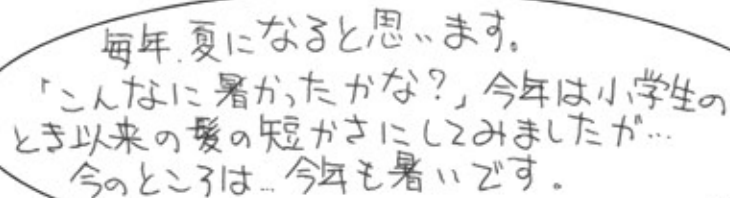 毎年、夏になると思います。
「こんなに暑かったかな?」今年は小学生の
とき以来の髪の短かさにしてみましたが…
今のところは…今年も暑いです。